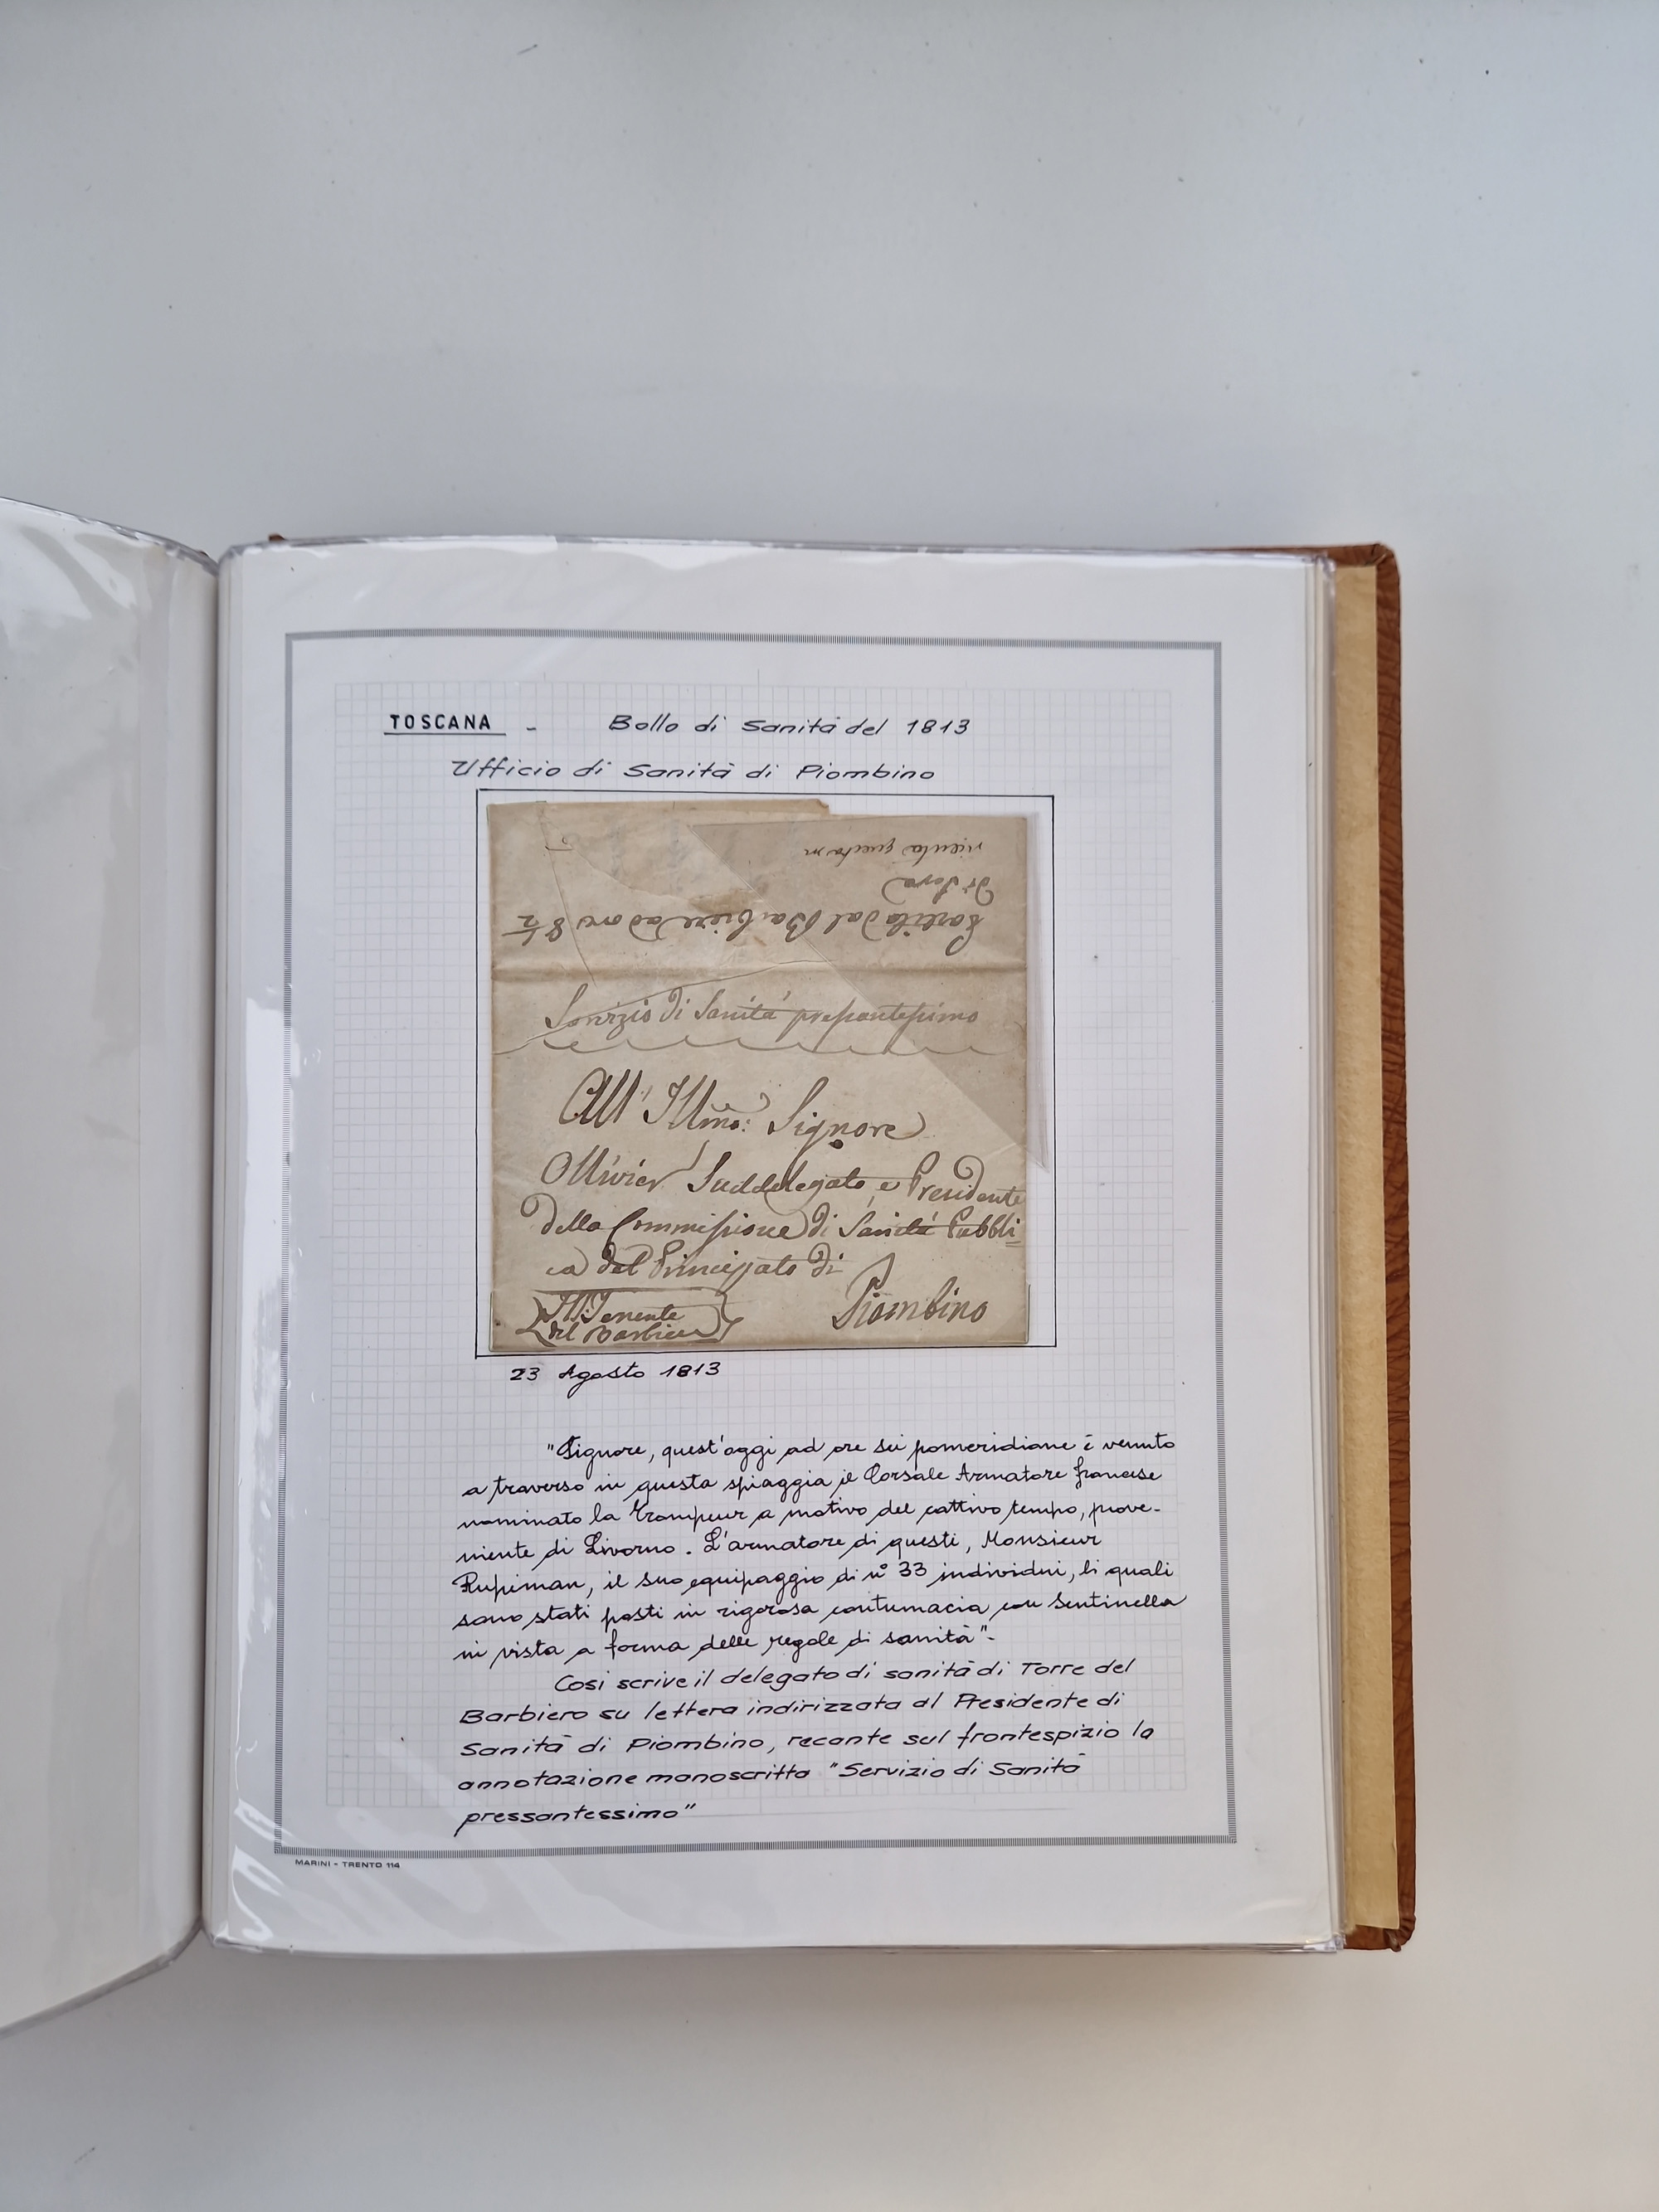 TOSCANA - Bollo di Sanità del 1813
Ufficio di Sanità di Piombino
ricevuta questa
di Sera
Partita dal Barbiere ad ore 8 1/2
Servizio di Sanità pressantessimo
All' Illmo: Signore
Ollivier Suddelegato e Presidente
della Commissione di Sanità Pubbli
ca del Principato di
Piombino
Il Tenente
del Barbiere
23 Agosto 1813
"Signore, quest'oggi ad ore sei pomeridiane è venuto
a traverso in questa spiaggia il Corsale Armatore francese
nominato la Trompeur a motivo del cattivo tempo, prove-
niente di Livorno. L'armatore di questi, Monsieur
Rupiman, il suo equipaggio di n° 33 individui, li quali
sono stati posti in rigorosa contumacia con Sentinella
in vista a forma delle regole di sanità".
Così scrive il delegato di sanità di Torre del
Barbiero su lettera indirizzata al Presidente di
Sanità di Piombino, recante sul frontespizio la
annotazione manoscritta "Servizio di Sanità
pressantessimo"
MARINI - TRENTO 114